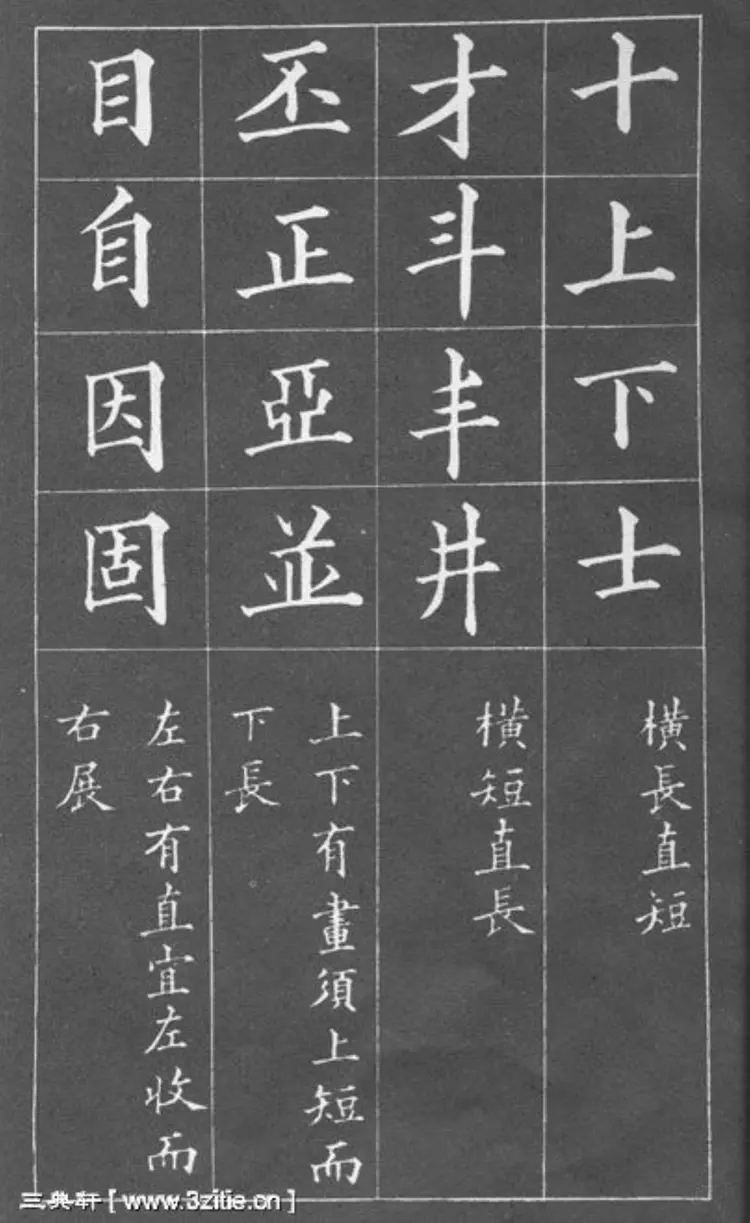 十上下士
橫長直短
才斗丰井
橫短直長
丕正亞並
上下有畫須上短而
下長
目自因固
左右有直宜左收而
右展
三典轩[www.3zitie.cn]